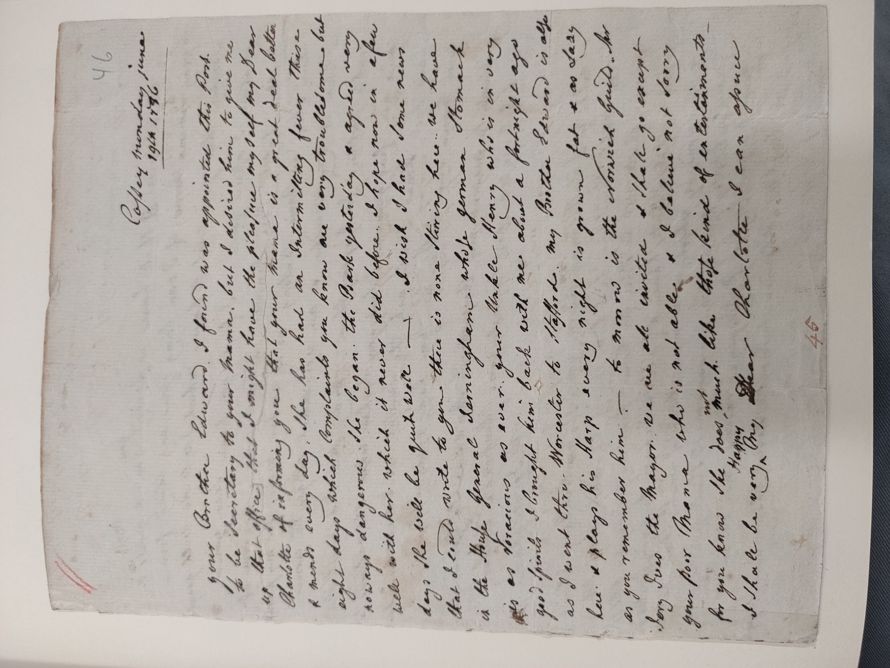 46
Cossey monday june
19th 1786
your Brother Edward I found was appointed this Post.
to be Secretary to your mama. but I desired him to give me
up that office, that I might have the pleasure myself my Dear
Charlotte of informing you that your mama is a great deal better
& mends every day. She has had an Intermitting fever these
eight days which complaints you know are very troublesome but
noways dangerous. She began the Bark yesterday & agreed very
well with her. which it never did before. I hope now in a few
days She will be quite well — . I wish I had Some news
that I could write to you there is none Stiring here. we have
in the House General Jerningham whose german Stomach
is as voracious as ever. your Unkle Henry who is in very
good spirits I brought him back with me about a fortnight ago
as I went thro' Worcester to Stafford. my Brother Edward is also
here & plays his Harp every night is grown fat & as Lazy
as you remember him — to morrow is the Norwich Guild. Mr
Ives the Mayor. we are all invited & Shall go except
your poor Mama who is not able & I believe not Sorry
for you know She does not much like those kind of entertainments—
I Shall be very Happy My Dear Charlotte I can assure
45